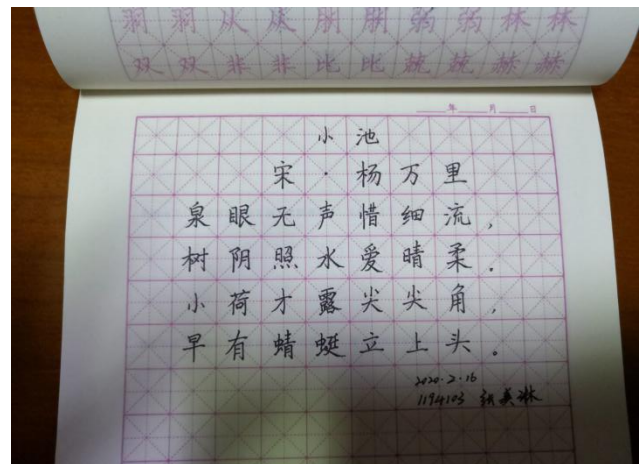 羽 羽 从 从 朋 朋 弱 弱 林 林
双 双 非 非 比 比 兢 兢 赫 赫
年 月 日
小池
宋·杨万里
泉眼无声惜细流，
树阴照水爱晴柔．
小荷才露尖尖角，
早有蜻蜓立上头。
2020.2.16
1194103